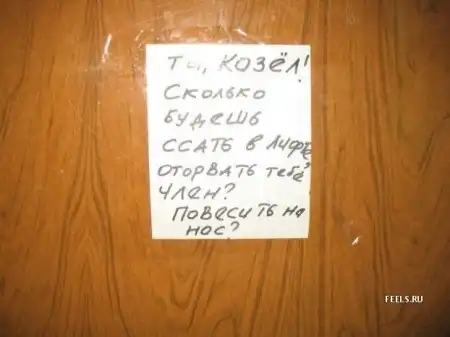 Ты, КОЗЁЛ!
Сколько
будешь
ссать в лифте
оторвать тебе
член?
Повесить на
нос?
FEELS.RU